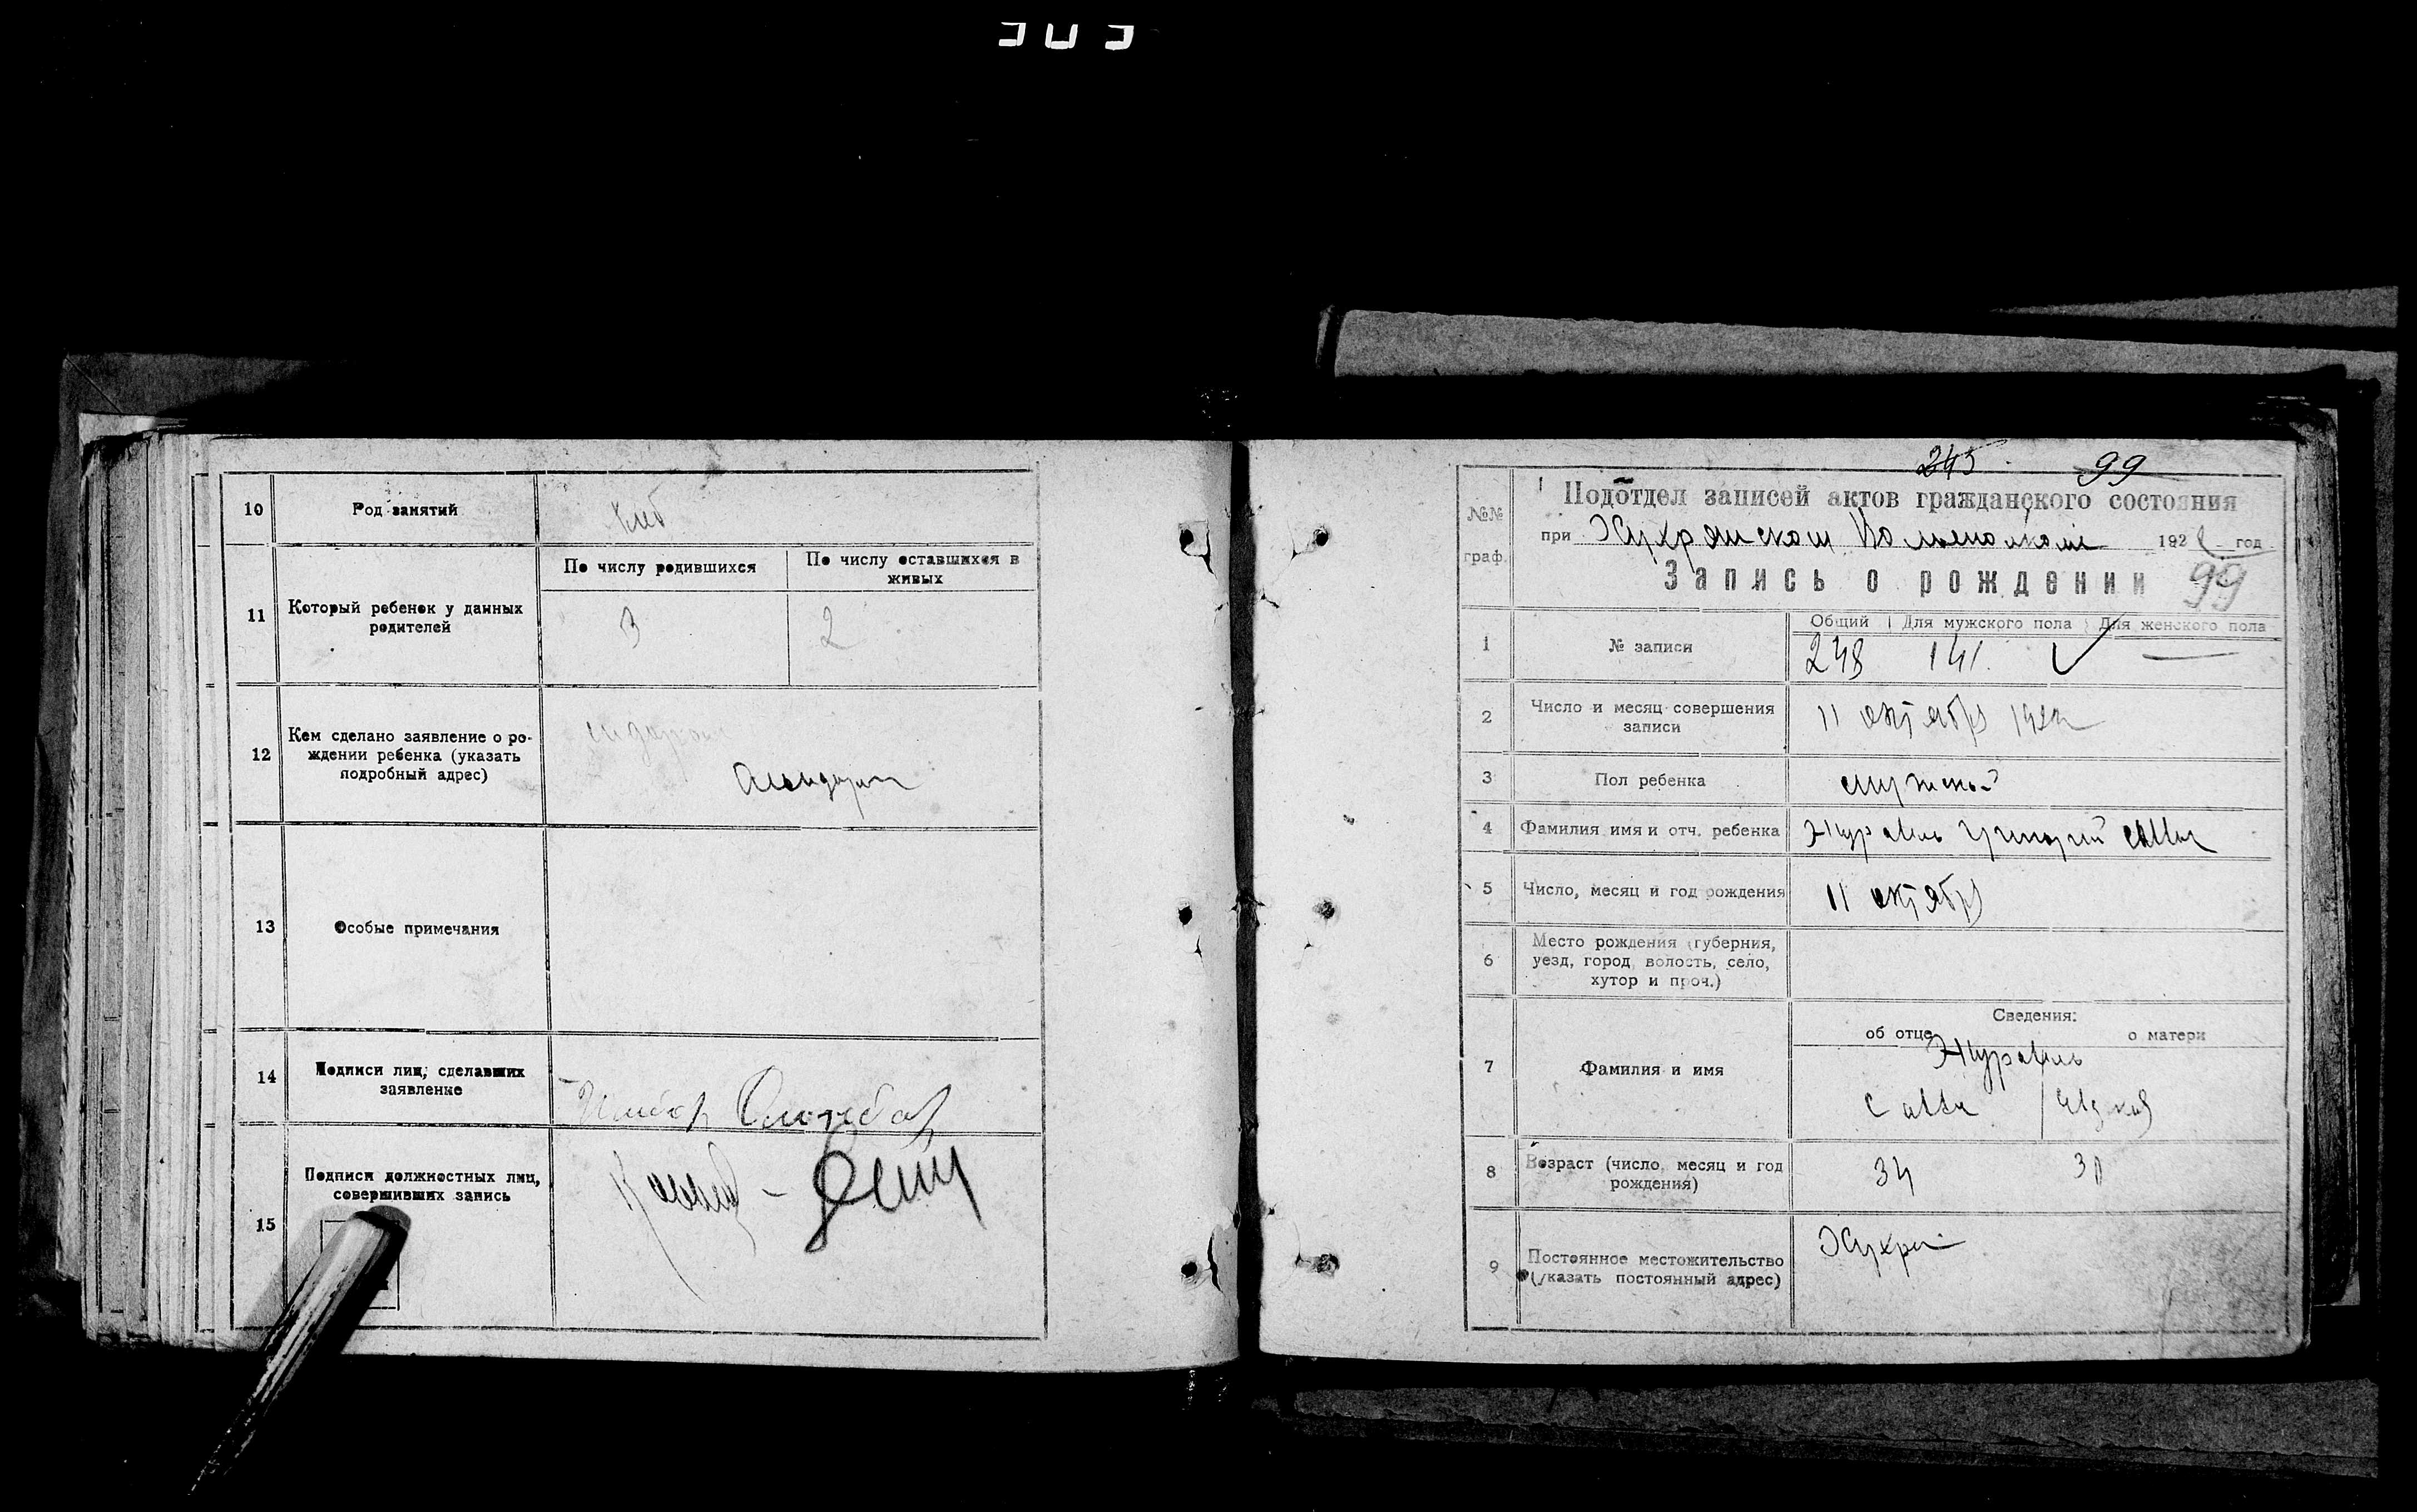 10 Род занятий Хлеб
11 Который ребенек у данных родителей
По числу родившихся
По числу оставшихся в живых
3 2
12 Кем сделано заявление о ро-
ждении ребенка (указать
подробный адрес)
13 Особые примечания
14 Подписи лиц, сделавших
заявление
15 Подписи должностных лиц,
совершивших запись
245 99
№№ граф.
Подотдел записей актов гражданского состояния
при Жухрянском 1922 год
Запись о рождении 99
Общий Для мужского пола Для женского пола
1 № записи 248 141 —
2 Число и месяц совершения
записи
11 октября
3 Пол ребенка мужской
4 Фамилия имя и отч. ребенка Журавль Григорий Савва
5 Число, месяц и год рождения 11 октября
6 Место рождения (губерния,
уезд, город, волость, село,
хутор и проч.)
Сведения:
об отце о матери
7 Фамилия и имя
Журавль
Савва
8 Возраст (число, месяц и год
рождения)
34 30
9 Постоянное местожительство
(указать постоянный адрес)